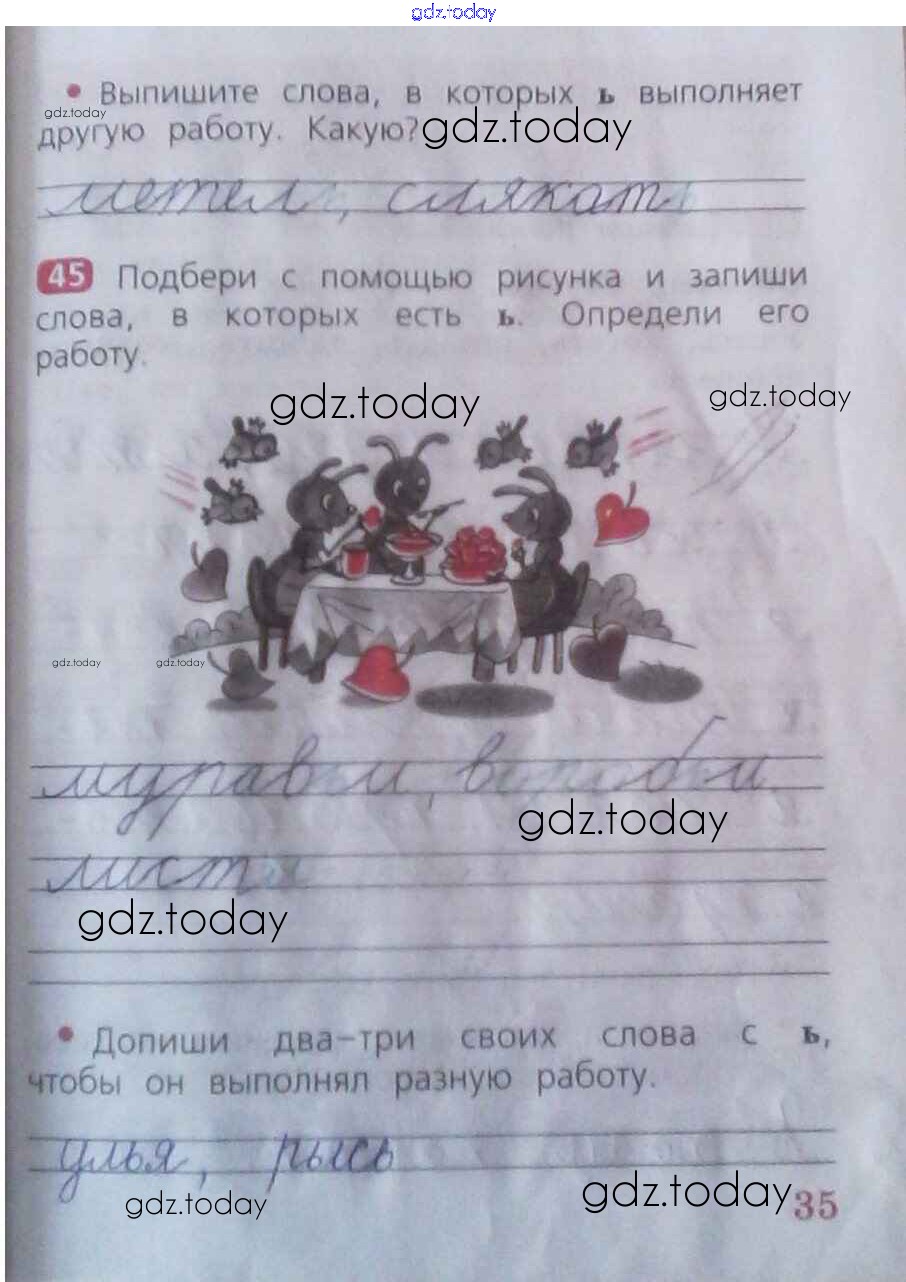 gdz.today
• Выпишите слова, в которых ь выполняет
gdz.today
другую работу. Какую? gdz.today
метель, слякать
45 Подбери с помощью рисунка и запиши
слова, в которых есть ь. Определи его
работу.
gdz.today gdz.today
gdz.today gdz.today
муравьи, воробьи
gdz.today
листья
gdz.today
• Допиши два-три своих слова с ь,
чтобы он выполнял разную работу.
улья, рысь
gdz.today gdz.today 35